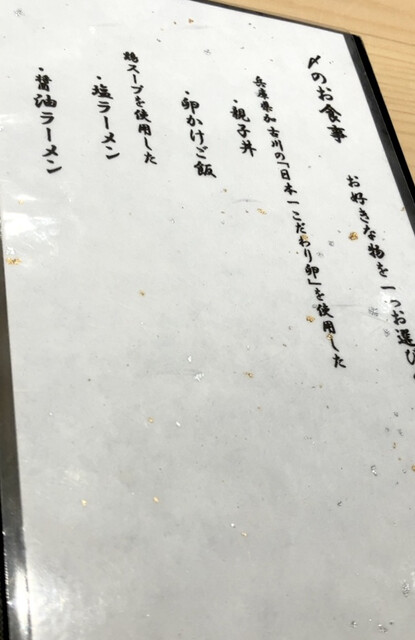 〆のお食事
お好きな物を一つお選び
兵庫県加古川の「日本一こだわり卵」を使用した
・親子丼
・卵かけご飯
鶏スープを使用した
・塩ラーメン
・醤油ラーメン